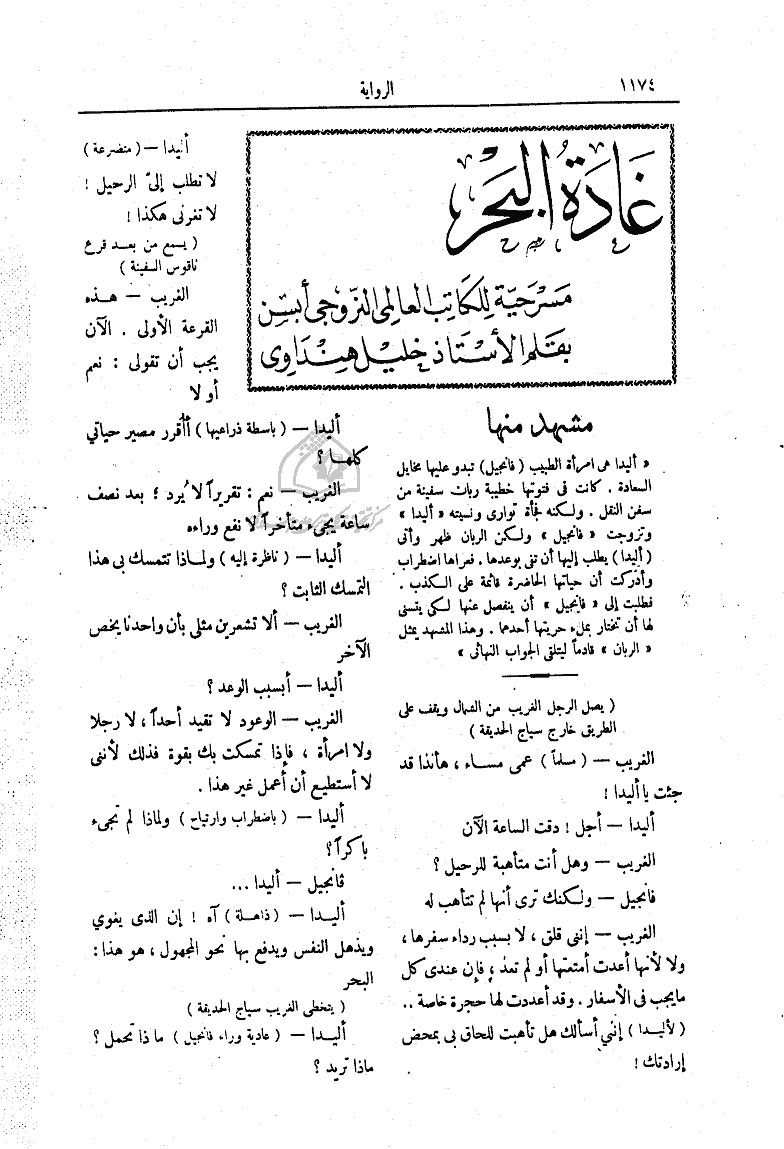 ١١٧٤
الرواية
غادة البحر
مسرحية للكاتب العالمي النروجي أبسن
بقلم الأستاذ خليل هنداوى
مشهد منها
« أليدا هى امرأة الطبيب ( فانجيل ) تبدو عليها مخايل
السعادة . كانت فى فتوتها خطيبة ربان سفينة من
سفن النقل . ولكنه فجأة توارى ونسيته « أليدا »
وتزوجت « فانجيل » ولكن الربان ظهر وأتى
( أليدا ) يطلب إليها أن تفى بوعدها . فعراها اضطراب
وأدركت أن حياتها الحاضرة قائمة على الكذب .
فطلبت إلى « فانجيل » أن ينفصل عنها لكى يتسنى
لها أن تختار بملء حريتها أحدهما . وهذا المشهد يمثل
« الربان » قادماً ليتلقى الجواب النهائى »
( يصل الرجل الغريب من الشمال ويقف على
الطريق خارج سياج الحديقة )
الغريب — ( مسلماً ) عمى مساء ، هأنذا قد
جئت يا أليدا !
أليدا — أجل ! دقت الساعة الآن
الغريب — وهل أنت متأهبة للرحيل ؟
فانجيل — ولكنك ترى أنها لم تتأهب له
الغريب — إننى قلق ، لا بسبب رداء سفرها ،
ولا لأنها أعدت أمتعتها أو لم تعد ، فإن عندى كل
مايجب فى الأسفار . وقد أعددت لها حجرة خاصة ..
( لأليدا ) إننى أسألك هل تأهبت للحاق بى بمحض
إرادتك !
أليدا — ( متضرعة )
لا تطلب إلىّ الرحيل !
لا تغرنى هكذا !
( يسمع من بعد قرع
ناقوس السفينة )
الغريب — هذه
القرعة الأولى . الآن
يجب أن تقولى : نعم
أو لا
أليدا — ( باسطة ذراعيها ) أأقرر مصير حياتي
كلها ؟
الغريب — نعم : تقريراً لا يُرد ؛ بعد نصف
ساعة يجىء متأخراً لا نفع وراءه
أليدا — ( ناظرة إليه ) ولماذا تتمسك بى هذا
التمسك الثابت ؟
الغريب — ألا تشعرين مثلى بأن واحدنا يخص
الآخر
أليدا — أبسبب الوعد ؟
الغريب — الوعود لا تقيد أحداً ، لا رجلا
ولا امرأة ، فإذا تمسكت بك بقوة فذلك لأننى
لا أستطيع أن أعمل غير هذا .
أليدا — ( باضطراب وارتياح ) ولماذا لم تجىء
باكراً ؟
ڤانجيل — أليدا ...
أليدا — ( ذاهلة ) آه ! إن الذى يغوي
ويذهل النفس ويدفع بها نحو المجهول ، هو هذا :
البحر
( يتخطى الغريب سياج الحديقة )
أليدا — ( عادية وراء فانجيل ) ماذا تحمل ؟
ماذا تريد ؟